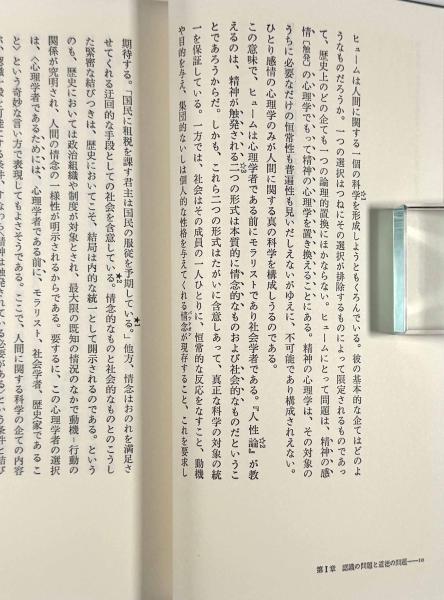 ヒュームは人間に関する一個の科学を形成しようともくろんでいる。彼の基本的な企てはどのよ
うなものだろうか。一つの選択はつねにその選択が排除するものによって限定されるものであっ
て、歴史上のどの企ても一つの論理的置換にほかならない。ヒュームにとって問題は、精神の感
情〔触発〕の心理学でもって精神の心理学を置き換えることにある。精神の心理学は、その対象の
うちに必要なだけの恒常性も普遍性も見いだしえないがゆえに、不可能であり構成されえない。
ひとり感情の心理学のみが人間に関する真の科学を構成しうるのである。
この意味で、ヒュームは心理学者である前にモラリストであり社会学者である。『人性論』が教
えるのは、精神が触発される二つの形式は本質的に情念的なものおよび社会的なものだというこ
とであろうからだ。しかも、これら二つの形式はたがいに含意しあって、真正な科学の対象の統
一を保証している。一方では、社会はその成員の一人ひとりに、恒常的な反応をなすこと、動機
や目的を与え、集団的ないしは個人的な性格を与えてくれる情念が現存すること、これを要求し
第Ⅰ章 認識の問題と道徳の問題——10
期待する。「国民に租税を課す君主は国民の服従を予期している」★1。他方、情念はおのれを満足さ
せてくれる迂回的な手段としての社会を含意している★2。情念的なものと社会的なものとのこうし
た緊密な結びつきは、歴史においてこそ、結局は内的な統一として開示されるのである。という
のも、歴史においては政治組織や制度が対象とされ、最大限の既知の情況のなかで動機-行動の
関係が究明され、人間の情念の一様性が明示されるからである。要するに、この心理学者の選択
は、〈心理学者であるためには、心理学者である前に、モラリスト、社会学者、歴史家であるこ
と〉という奇妙な言い方で表現してもよさそうである。ここで、人間に関する科学の企ての内容